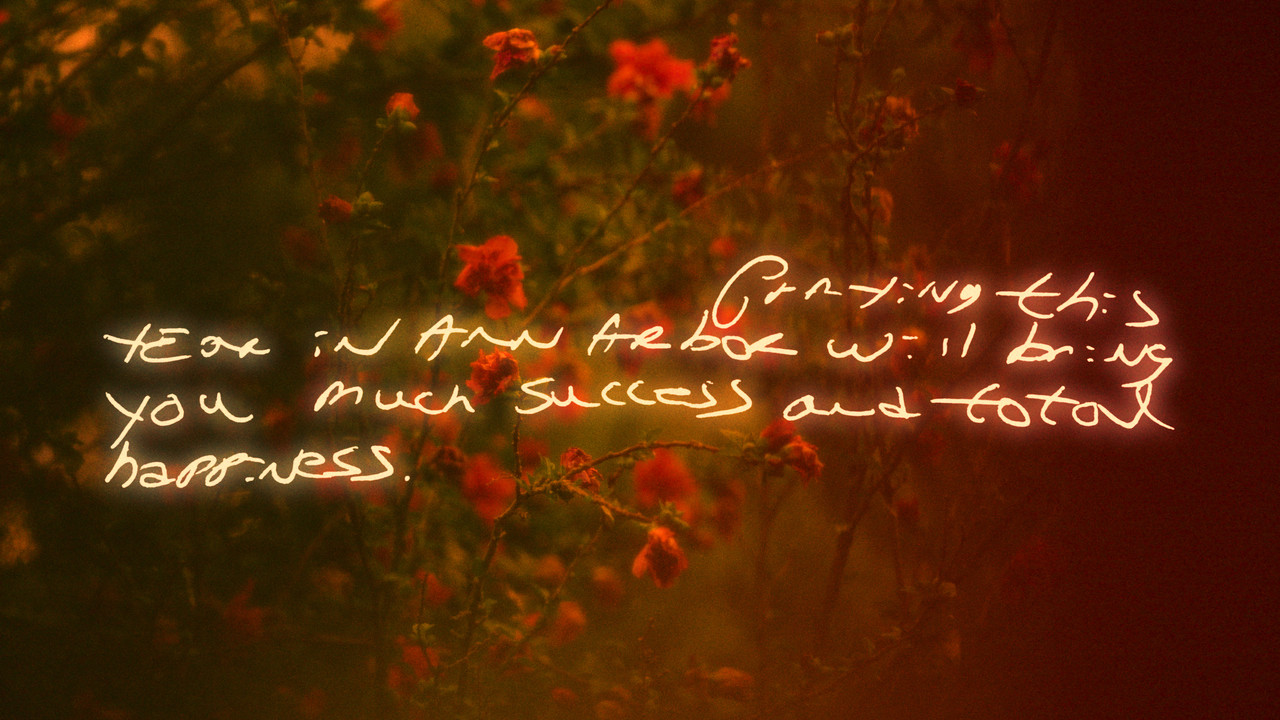 this
year in Ann Arbor will bring
you much success and total
happiness.